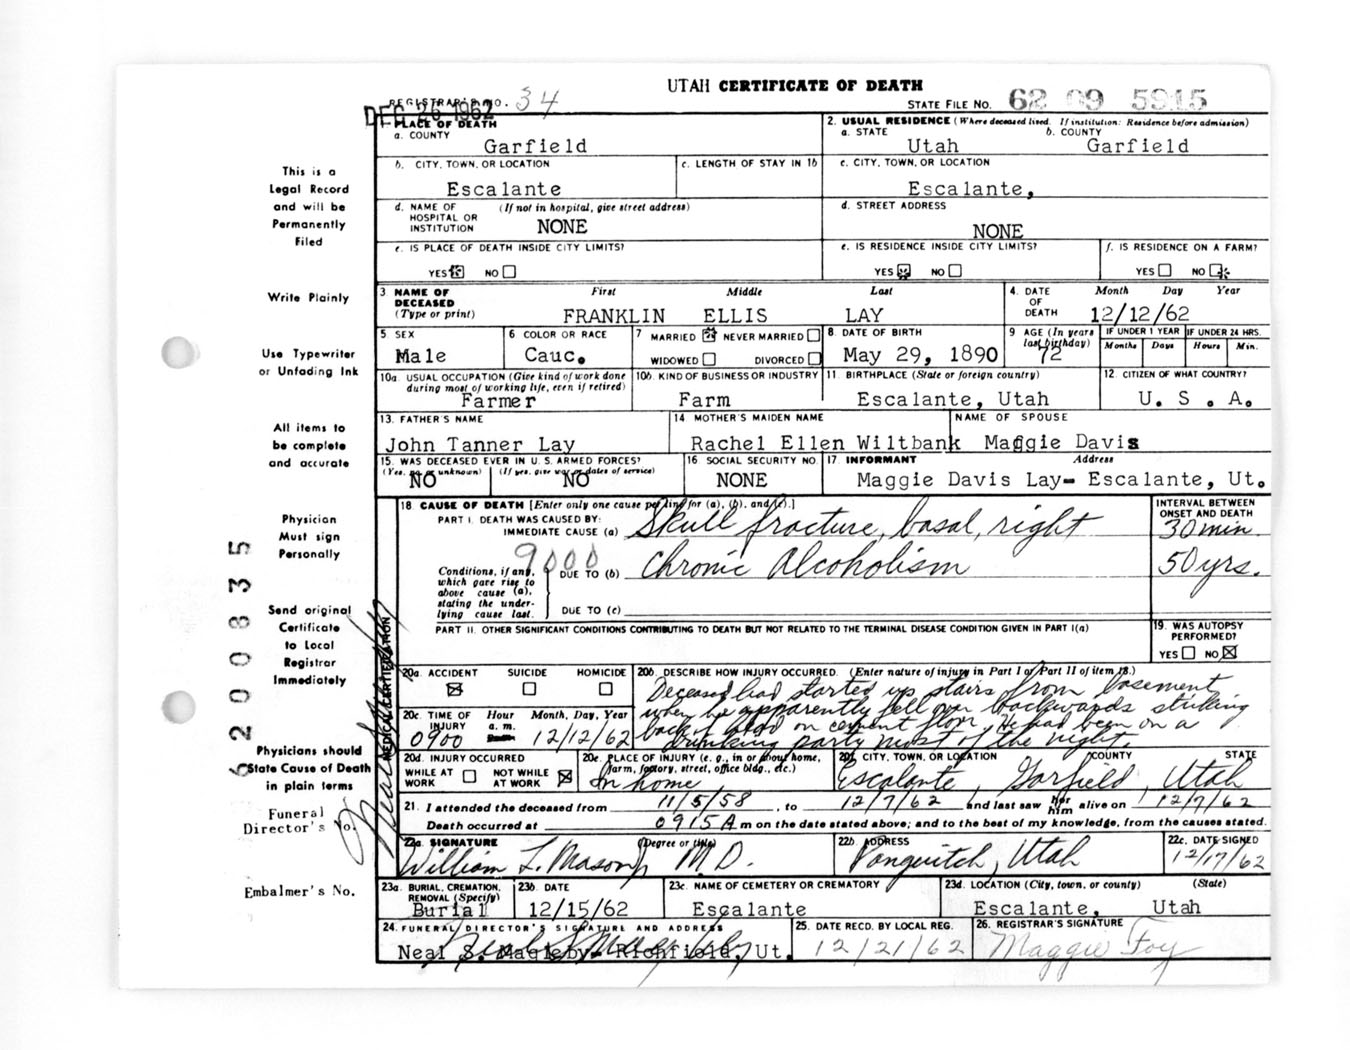 UTAH CERTIFICATE OF DEATH
REGISTRAR'S NO. 34
DEC 26 1962
STATE FILE NO. 62 09 5915
PLACE OF DEATH
a. COUNTY
Garfield
2. USUAL RESIDENCE (Where deceased lived. If institution: Residence before admission)
a. STATE b. COUNTY
Utah Garfield
b. CITY, TOWN, OR LOCATION
Escalante
c. LENGTH OF STAY IN 1b
c. CITY, TOWN, OR LOCATION
Escalante,
d. NAME OF HOSPITAL OR INSTITUTION (If not in hospital, give street address)
NONE
d. STREET ADDRESS
NONE
e. IS PLACE OF DEATH INSIDE CITY LIMITS?
YES NO
e. IS RESIDENCE INSIDE CITY LIMITS?
YES NO
f. IS RESIDENCE ON A FARM?
YES NO
3 NAME OF DECEASED (Type or print) First Middle Last
FRANKLIN ELLIS LAY
4. DATE OF DEATH Month Day Year
12/12/62
5 SEX
Male
6 COLOR OR RACE
Cauc.
7 MARRIED NEVER MARRIED
WIDOWED DIVORCED
8. DATE OF BIRTH
May 29, 1890
9 AGE (In years last birthday)
72
IF UNDER 1 YEAR IF UNDER 24 HRS.
Months Days Hours Min.
10a. USUAL OCCUPATION (Give kind of work done during most of working life, even if retired)
Farmer
10b. KIND OF BUSINESS OR INDUSTRY
Farm
11 BIRTHPLACE (State or foreign country)
Escalante, Utah
12. CITIZEN OF WHAT COUNTRY?
U. S . A.
13. FATHER'S NAME
John Tanner Lay
14 MOTHER'S MAIDEN NAME
Rachel Ellen Wiltbank
NAME OF SPOUSE
Maggie Davis
15. WAS DECEASED EVER IN U. S. ARMED FORCES?
(Yes, no, or unknown) (If yes, give war or dates of service)
NO NO
16 SOCIAL SECURITY NO.
NONE
17 INFORMANT Address
Maggie Davis Lay- Escalante, Ut.
18. CAUSE OF DEATH [Enter only one cause per line for (a), (b), and (c).]
PART I. DEATH WAS CAUSED BY:
IMMEDIATE CAUSE (a) Skull fracture, basal, right
INTERVAL BETWEEN ONSET AND DEATH
30 min.
9000
Conditions, if any, which gave rise to above cause (a), stating the under-lying cause last.
DUE TO (b) Chronic Alcoholism
50 yrs.
DUE TO (c)
PART II. OTHER SIGNIFICANT CONDITIONS CONTRIBUTING TO DEATH BUT NOT RELATED TO THE TERMINAL DISEASE CONDITION GIVEN IN PART I(a)
19. WAS AUTOPSY PERFORMED?
YES NO
MEDICAL CERTIFICATION
20a. ACCIDENT SUICIDE HOMICIDE
20b. DESCRIBE HOW INJURY OCCURRED. (Enter nature of injury in Part I or Part II of item 18.)
Deceased had started up stairs from basement
when he apparently fell over backwards striking
back of head on cement floor. He had been on a
drinking party most of the night.
20c. TIME OF INJURY Hour a. m. Month, Day, Year
0900 12/12/62
20d. INJURY OCCURRED
WHILE AT WORK NOT WHILE AT WORK
20e. PLACE OF INJURY (e. g., in or about home, farm, factory, street, office bldg., etc.)
In home
20f. CITY, TOWN, OR LOCATION COUNTY STATE
Escalante, Garfield, Utah
21. I attended the deceased from 11/5/58, to 12/7/62, and last saw her him alive on 12/7/62
Death occurred at 0915 A m on the date stated above; and to the best of my knowledge, from the causes stated.
22a. SIGNATURE (Degree or title)
William L. Mason, M. D.
22b. ADDRESS
Panguitch, Utah
22c. DATE SIGNED
12/17/62
23a. BURIAL, CREMATION, REMOVAL (Specify)
Burial
23b. DATE
12/15/62
23c. NAME OF CEMETERY OR CREMATORY
Escalante
23d. LOCATION (City, town, or county) (State)
Escalante, Utah
24. FUNERAL DIRECTOR'S SIGNATURE AND ADDRESS
Neal S. Magleby- Richfield, Ut.
25. DATE RECD. BY LOCAL REG.
12/21/62
26. REGISTRAR'S SIGNATURE
Maggie Foy
This is a
Legal Record
and will be
Permanently
Filed
Write Plainly
Use Typewriter
or Unfading Ink
All items to
be complete
and accurate
Physician
Must sign
Personally
Send original
Certificate
to Local
Registrar
Immediately
Physicians should
State Cause of Death
in plain terms
Funeral
Director's No.
Embalmer's No.